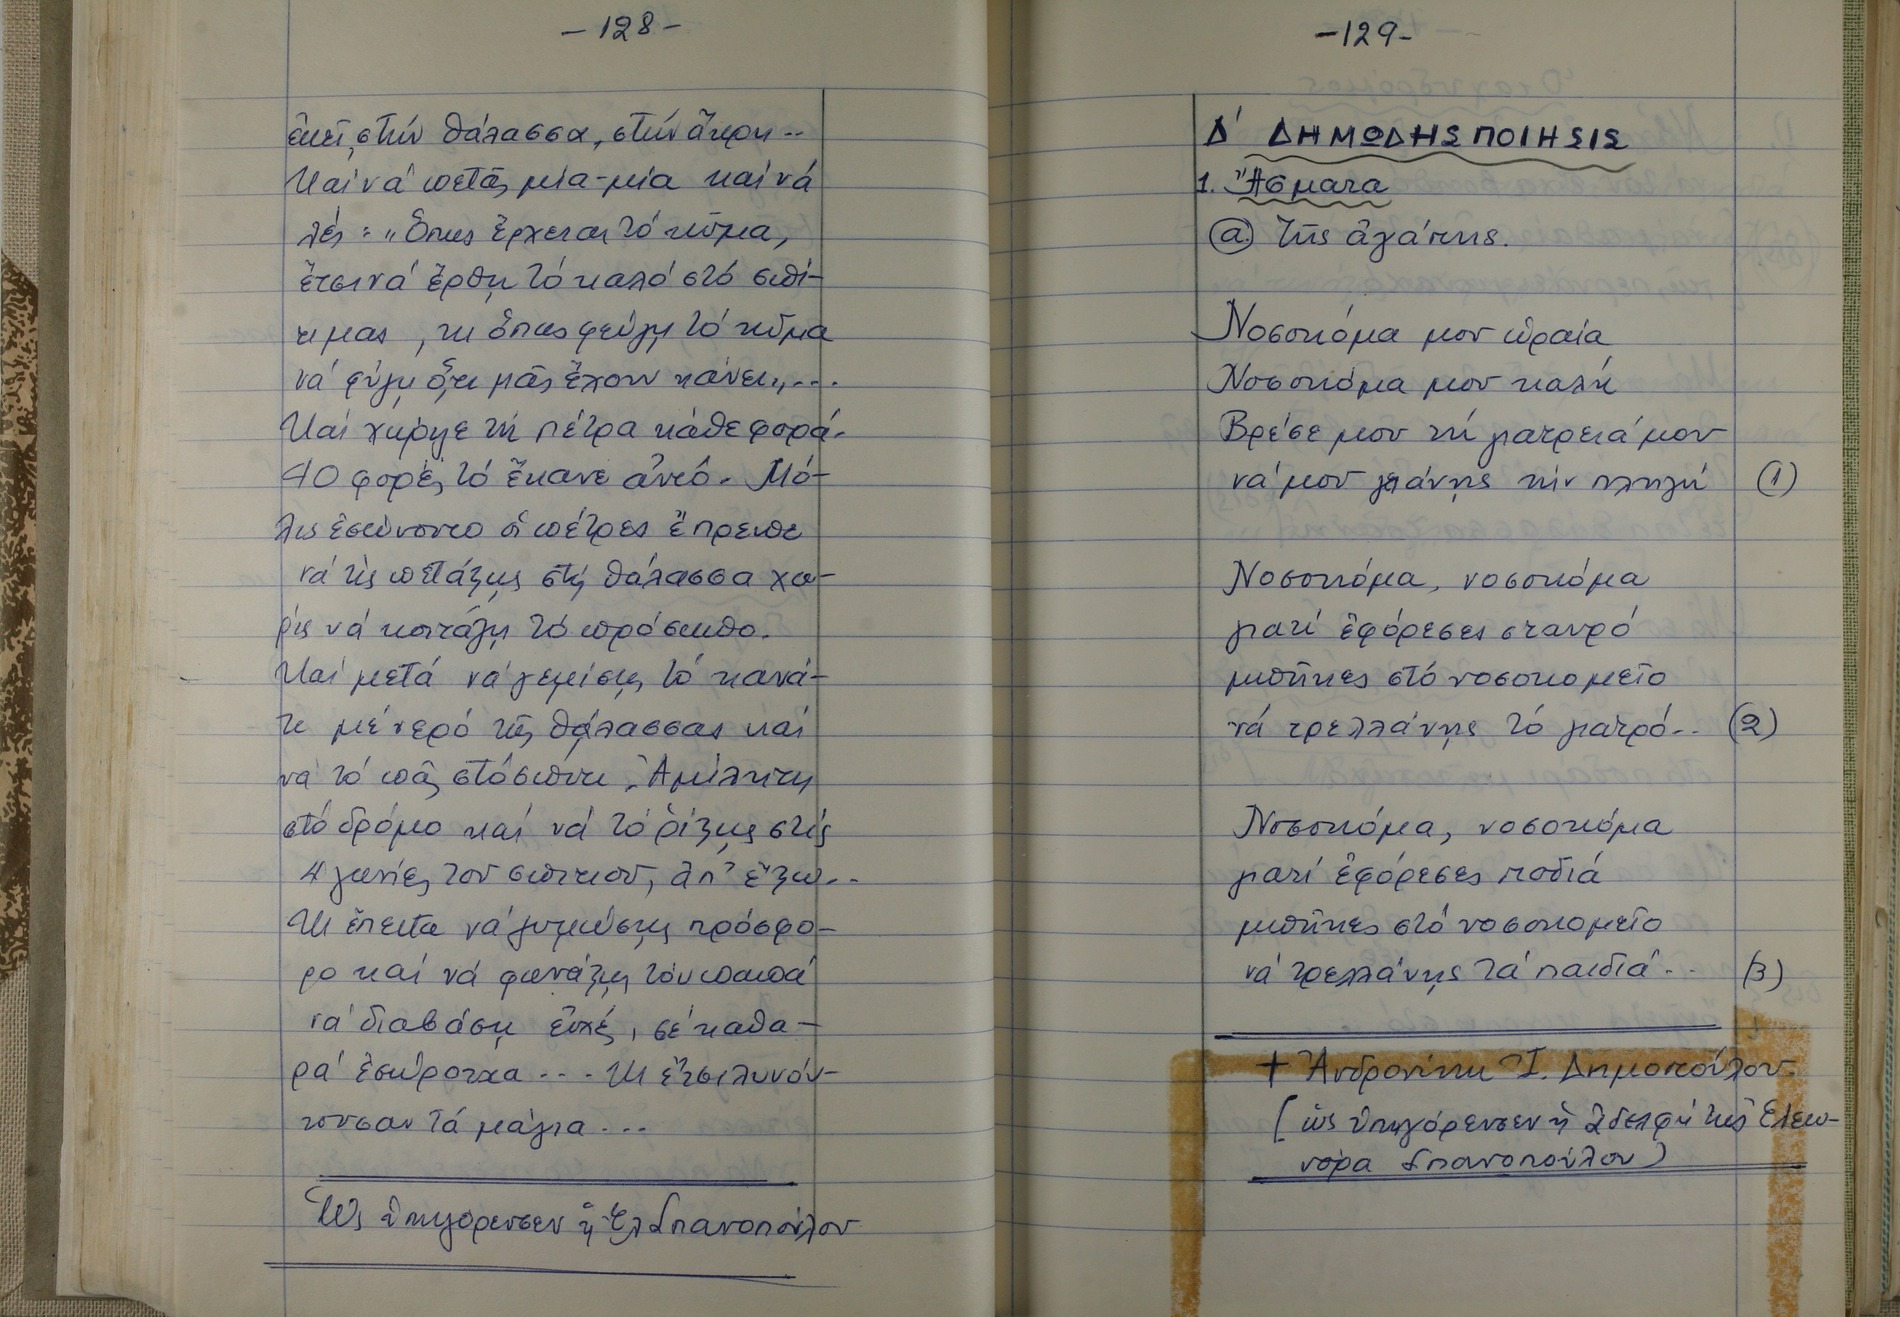 -128-
ἐκεῖ, στήν θάλασσα, στήν ἄκρη..
Καί νά πετᾶς μία-μία καί νά
λές: „Ὅπως ἔρχεται τό κῦμα,
ἔτσι νά ἔρθῃ τό καλό στό σπί-
τι μας, κι ὅπως φεύγῃ τό κῦμα
νά φύγῃ ὅ,τι μᾶς ἔχουν κάνει„...
Καί χώριζε τή πέτρα κάθε φορά.
40 φορές τό ἔκανε αὐτό. Μό-
λις ἐσώνοντο οἱ πέτρες ἔπρεπε
νά τίς πετάξῃς στή θάλασσα χω-
ρίς νά κοιτάζῃ τό πρόσωπο.
Καί μετά νά γεμίσῃς τό κανά-
τι μέ νερό τῆς θάλασσας καί
νά τό πᾶς στό σπίτι. Ἀμίλητη
στό δρόμο καί νά τό ρίξῃς στίς
4 γωνίες τοῦ σπιτιοῦ, ἀπ' ἔξω..
Κι ἔπειτα νά ζυμώσῃς πρόσφο-
ρο καί νά φωνάξῃς τόν παπᾶ
νά διαβάσῃ εὐχές, σέ καθα-
ρά ἐσώρουχα... Κι ἔτσι λυνόν-
τουσαν τά μάγια...
Ὡς ὑπηγόρευσεν ἡ Ἐλ Σπανοπούλου
-129-
Δ' ΔΗΜΩΔΗΣ ΠΟΙΗΣΙΣ
1. Ἄσματα
(α) Τῆς ἀγάπης.
Νοσοκόμα μου ὡραία
Νοσοκόμα μου καλή
Βρέσε μου τή γιατρειά μου
νά μοῦ γιάνῃς τήν πληγή (1)
Νοσοκόμα, νοσοκόμα
γιατί ἐφόρεσες σταυρό
μπῆκες στό νοσοκομεῖο
νά τρελλάνῃς τό γιατρό.. (2)
Νοσοκόμα, νοσοκόμα
γιατί ἐφόρεσες ποδιά
μπῆκες στό νοσοκομεῖο
νά τρελλάνῃς τά παιδιά.. (3)
+ Ἀνδρονίκη Ἰ. Δημοπούλου.
(ὡς ὑπηγόρευσεν ἡ ἀδελφή της Ἐλεω-
νόρα Σπανοπούλου)